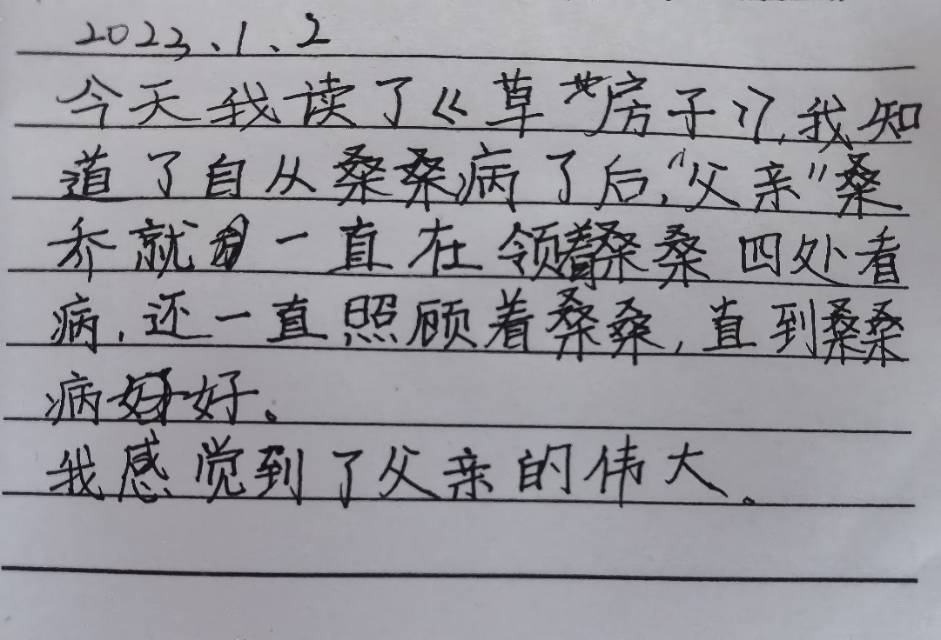 2023.1.2
今天我读了《草房子》,我知
道了自从桑桑病了后,“父亲”桑
乔就一直在领着桑桑四处看
病,还一直照顾着桑桑,直到桑桑
病好。
我感觉到了父亲的伟大。